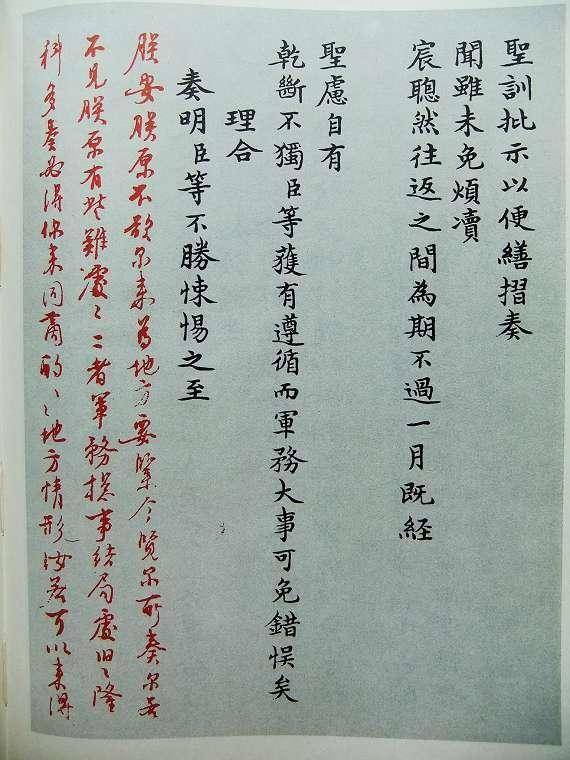 聖訓批示以便繕摺奏
聞雖未免煩瀆
宸聰然往返之間為期不過一月既経
聖慮自有
乾斷不獨臣等獲有遵循而軍務大事可免錯悮矣
理合
奏明臣等不勝悚惕之至
朕安朕原不欲尔来為地方要緊今覽尔所奏尔若
不見朕原有些難處々二者軍務總事結局處旧々隆
科多奏必得你来同商酌々地方情形汝若可以来得